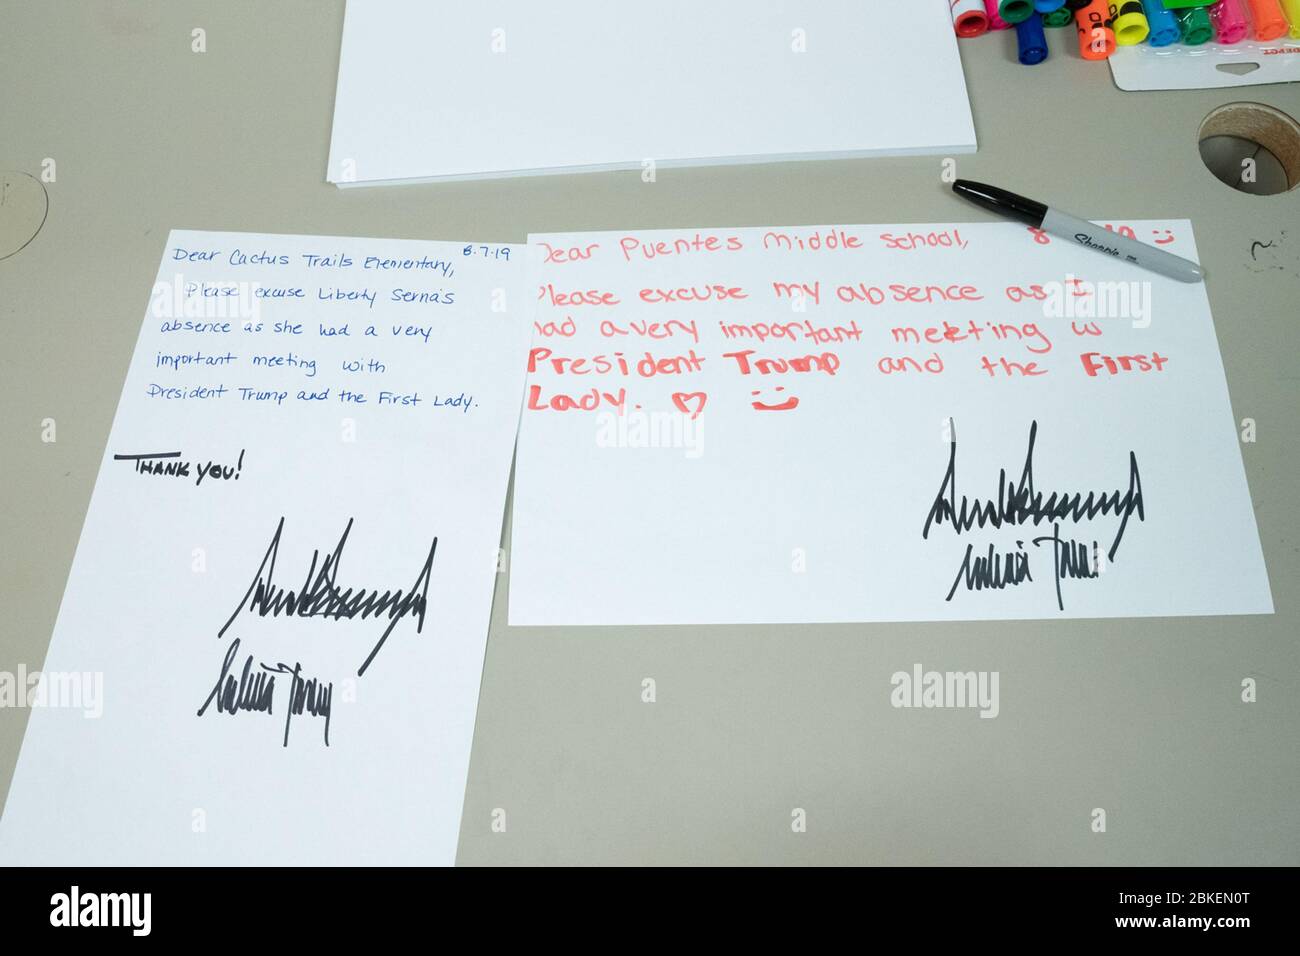 Dear Cactus Trails Elementary, 8.7.19
Please excuse Liberty Serna's
absence as she had a very
important meeting with
President Trump and the First Lady.
THANK YOU!
Dear Puentes middle school,
Please excuse my absence as I
had a very important meeting w
President Trump and the First
Lady.
Sharpie
DEPOT
alamy
alamy
alamy
alamy
Image ID: 2BKEN0T
www.alamy.com